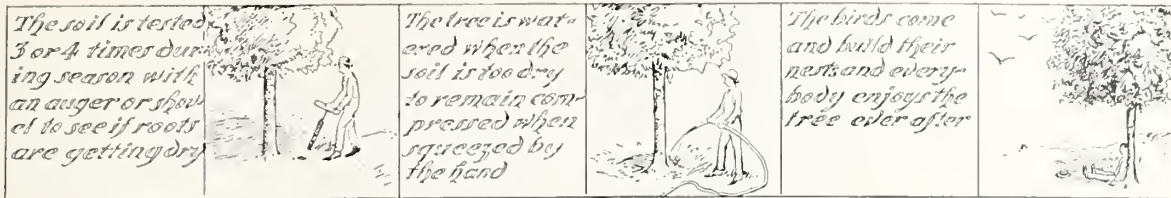 The soil is tested
3 or 4 times dur-
ing season with
an auger or shov-
el to see if roots
are getting dry
The tree is wat-
ered when the
soil is too dry
to remain com-
pressed when
squeezed by
the hand
The birds come
and build their
nests and every-
body enjoys the
tree ever after